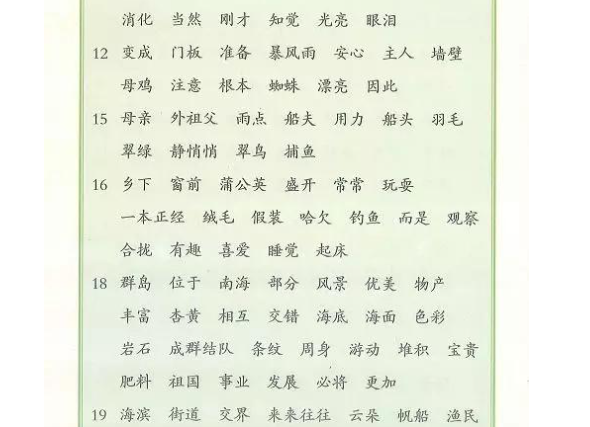 消化 当然 刚才 知觉 光亮 眼泪
12 变成 门板 准备 暴风雨 安心 主人 墙壁
母鸡 注意 根本 蜘蛛 漂亮 因此
15 母亲 外祖父 雨点 船夫 用力 船头 羽毛
翠绿 静悄悄 翠鸟 捕鱼
16 乡下 窗前 蒲公英 盛开 常常 玩耍
一本正经 绒毛 假装 哈欠 钓鱼 而是 观察
合拢 有趣 喜爱 睡觉 起床
18 群岛 位于 南海 部分 风景 优美 物产
丰富 杏黄 相互 交错 海底 海面 色彩
岩石 成群结队 条纹 周身 游动 堆积 宝贵
肥料 祖国 事业 发展 必将 更加
19 海滨 街道 交界 来来往往 云朵 帆船 渔民